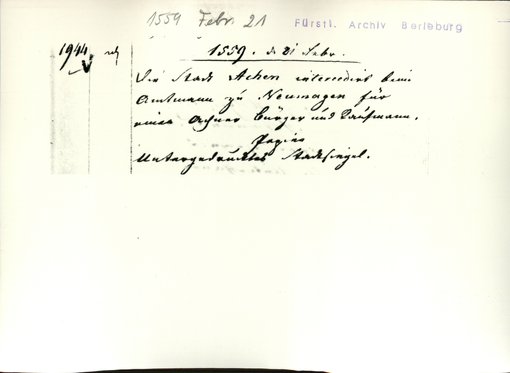 1559 Febr 21
Fürstl. Archiv Berleburg
1944
1559. d. 21 Febr.
Die Stadt Achen intercedirt beim
Amtmann zu Neumagen für
einen Achner Bürger und Kaufmann.
Papier
Untergedrucktes Stadtsiegel.